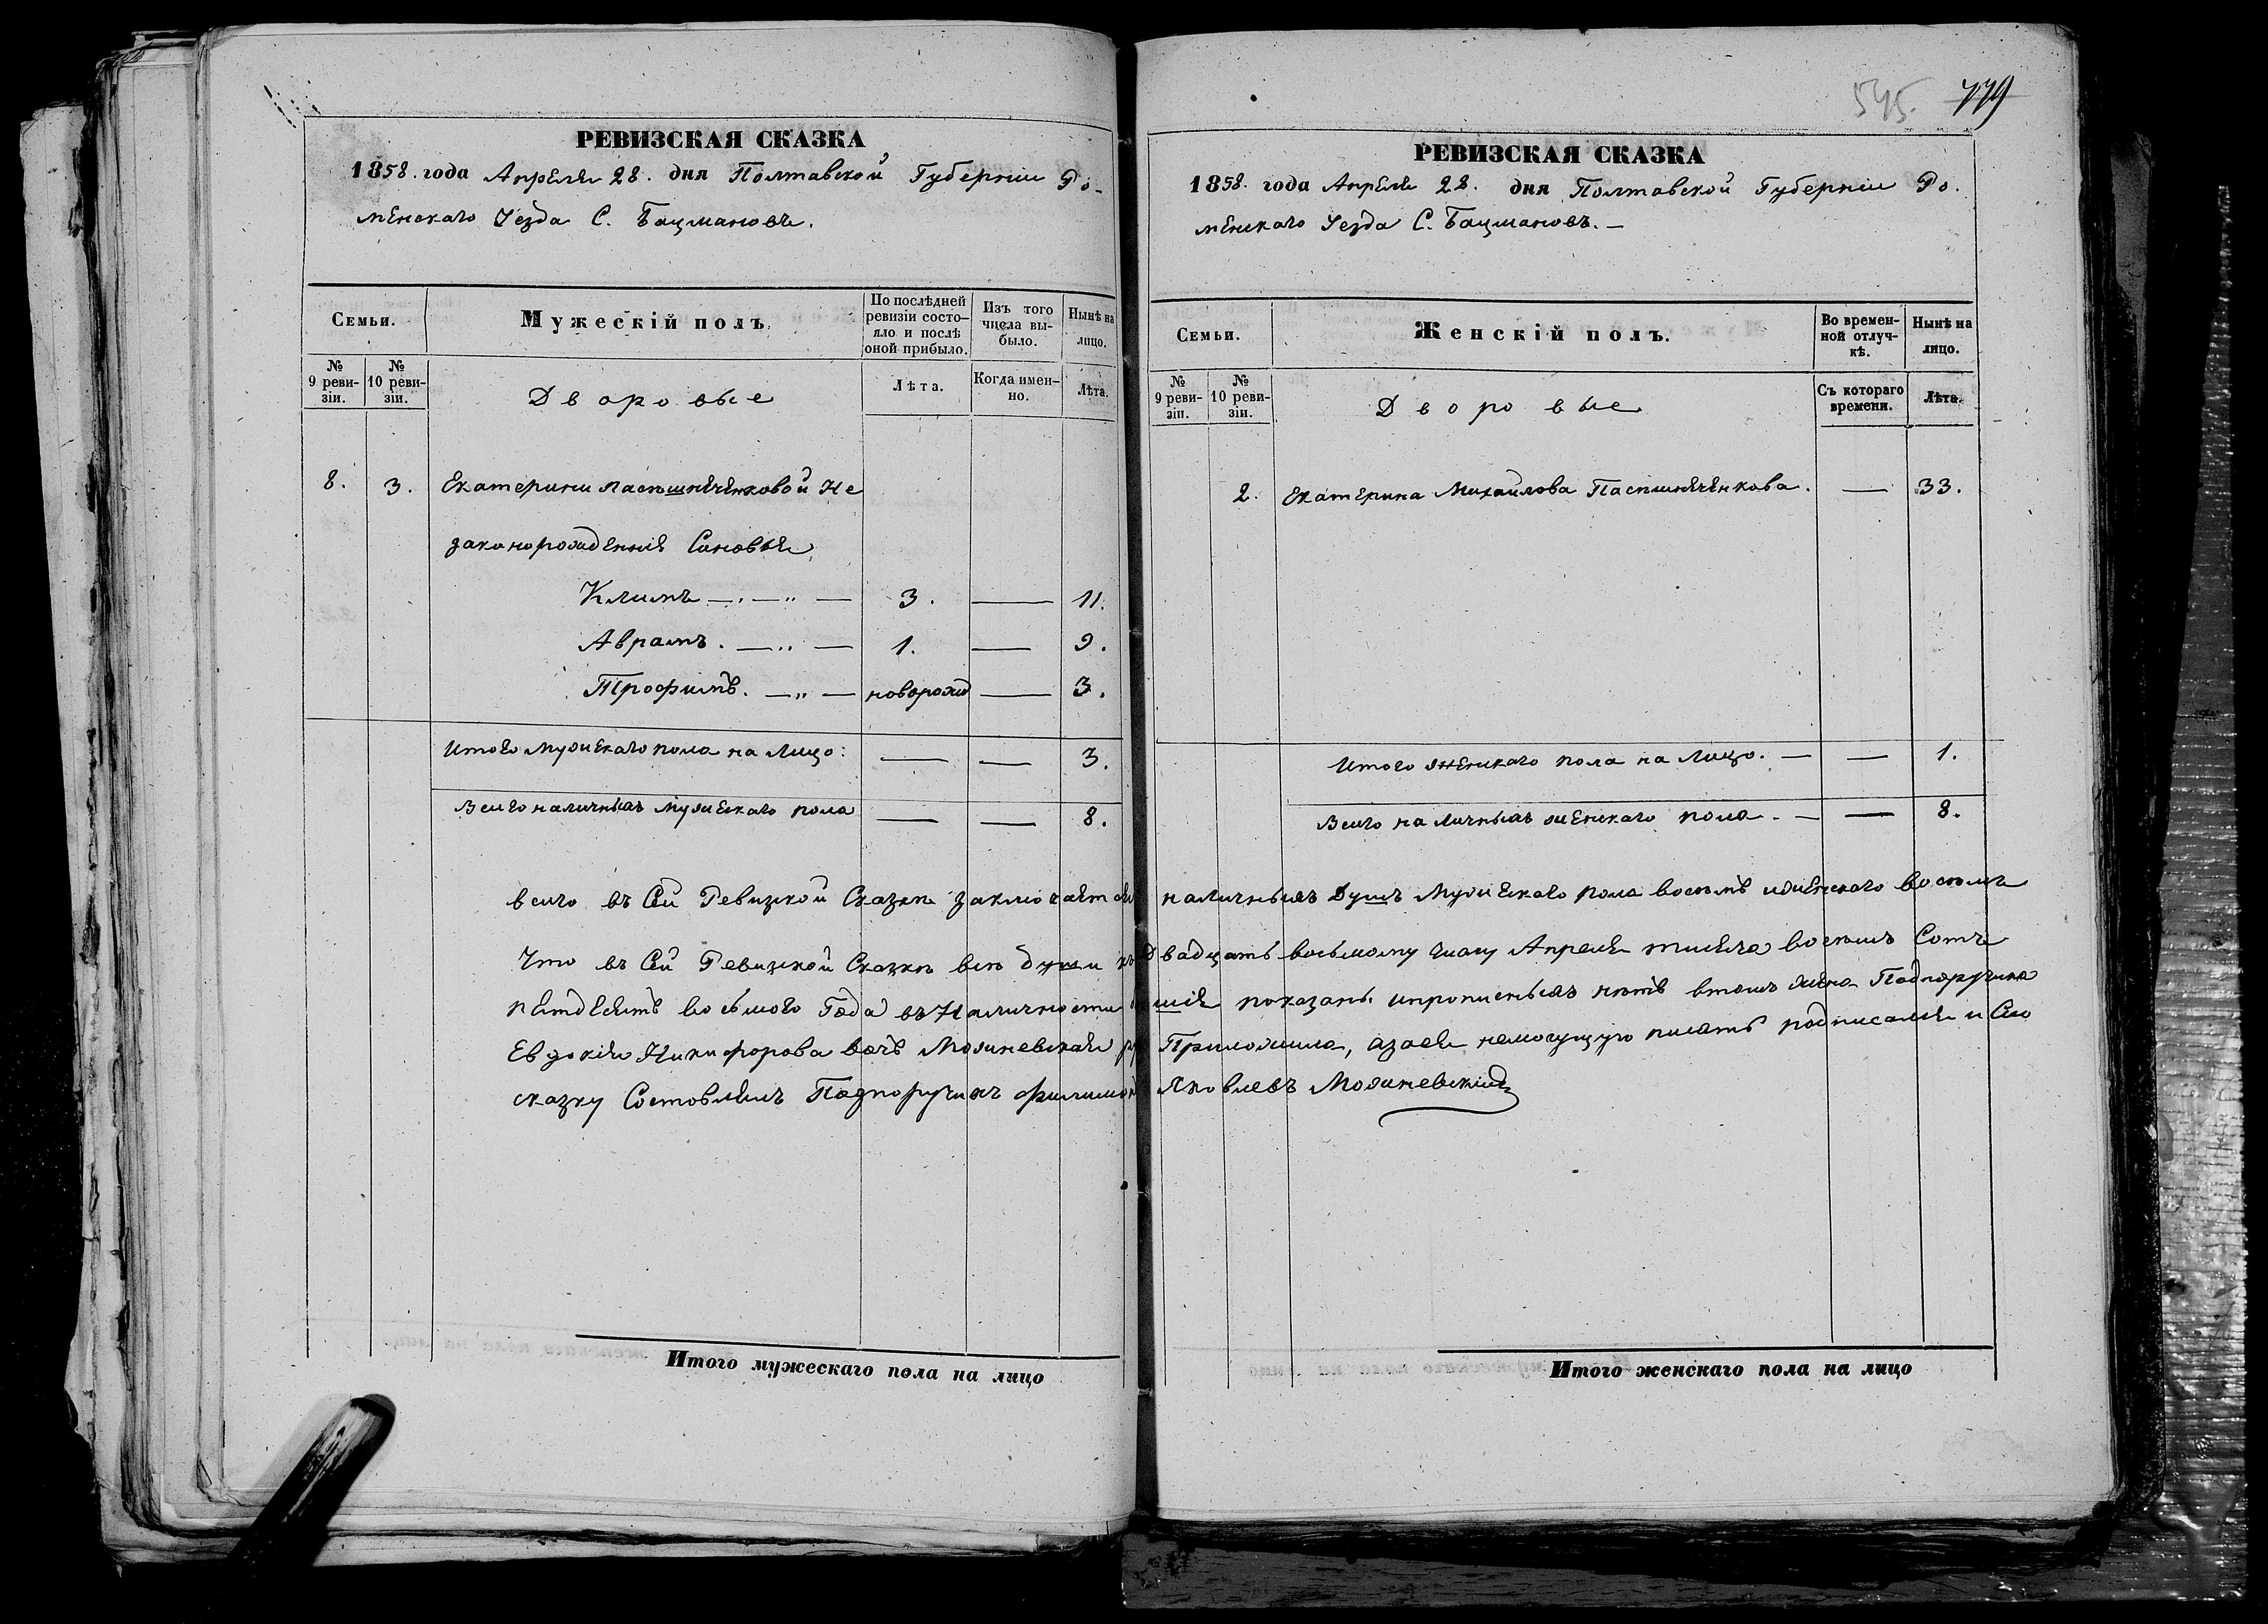 РЕВИЗСКАЯ СКАЗКА
1858. года Апреля 28. дня Полтавской Губерніи Ро-
менскаго Уезда С. Бацмановъ.
Семьи.
Мужескій полъ.
По послѣдней ревизіи состо-яло и послѣ оной прибыло.
Изъ того числа вы-было.
Нынѣ на лицо.
№ 9 реви-зіи.
№ 10 реви-зіи.
Дворовые
Лѣта.
Когда имен-но.
Лѣта.
8. 3. Екатерини Пасюшнеченковой Не
законорожденнія Сановья
Климъ — 3. — 11.
Аврамъ. — 1. — 9.
Трофимъ. — новорожд — 3.
Итого мужескаго пола на лицо: — — 3.
Всего наличныхъ мужескаго пола — — 8.
545. 779
РЕВИЗСКАЯ СКАЗКА
1858. года Апреля 28. дня Полтавской Губерніи Ро.
менскаго Уезда С. Бацмановъ. —
Семьи.
Женскій полъ.
Во времен-ной отлуч-кѣ.
Нынѣ на лицо.
№ 9 реви-зіи.
№ 10 реви-зіи.
Дворовые
Съ котораго времени.
Лѣта.
2. Екатерина Михайлова. — 33.
Итого женскаго пола на лицо. — — 1.
Всего наличныхъ женскаго пола. — — 8.
всего въ Сей Ревизкой Сказкѣ заключается наличныхъ Душъ Мужескаго пола восемъ иженскаго восемъ
Что въ Сей Ревизской Сказкѣ всѣ души къ двадцать восьмому числу Апреля тисяча восемъ Сотъ
петдесятъ восьмого Года въ Наличности показаны ипрописныхъ нѣтъ втомъ жена Подпоручика
Евдокія Никифорова дочь Можневская Приложила, азаея немогущую писать подписался и Сію
сказку Состовлялъ Подпоручикъ Филимонъ Яковлевъ
Итого мужескаго пола на лицо
Итого женскаго пола на лицо